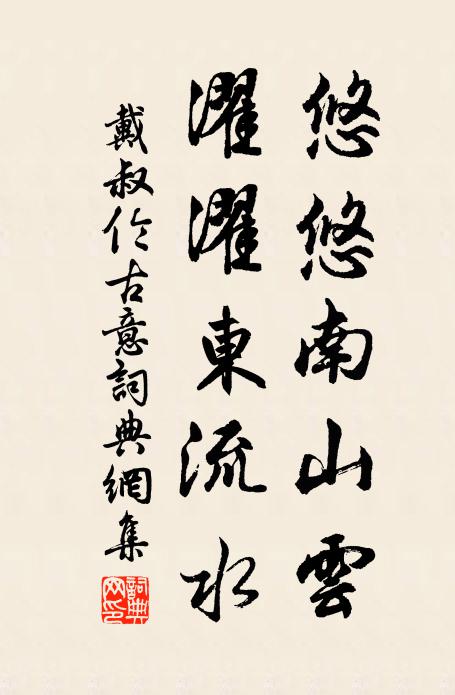 悠悠南山雲
濯濯東流水
戴叔伦古意詞典網集
詞典網印